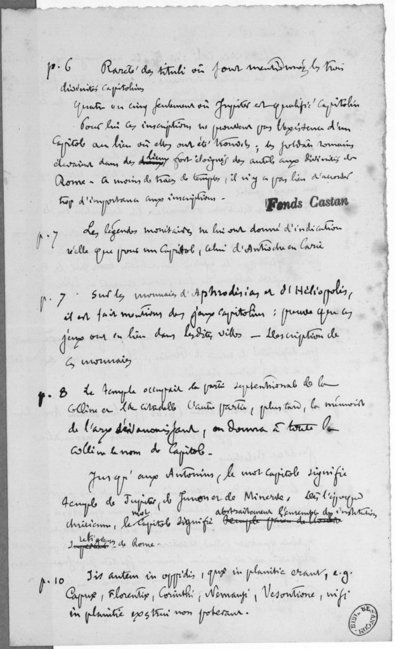 p. 6 Rareté des tituli où sont mentionnés les trois
divinités capitolines
Quatre ou cinq seulement où Jupiter est qualifié Capitolin
Pour lui ces inscriptions ne prouvent pas l'existence d'un
Capitole au lieu où elles ont été trouvées ; les soldats romains
dans des lieux fort éloignés des autels aux divinités de
Rome. — à moins de traces de temples, il n'y a pas lieu d'accorder
trop d'importance aux inscriptions.
Fonds Castan
p. 7 Les légendes monétaires ne lui ont donné d'indication
réelle que pour un Capitole, celui d'Antioche en Carie
p. 7 Sur les monnaies d'Aphrodisias et d'Héliopolis,
il est fait mention des jeux capitolins : preuve que ces
jeux ont eu lieu dans lesdites villes — Description de
ces monnaies
p. 8 Le temple occupait la partie septentrionale de la
colline et la citadelle l'autre partie, plus tard, la mémoire
de l'arx s'évanouissant, on donna à toute la
colline le nom de Capitole.
Jusqu'aux Antonins, le mot capitole signifie
temple de Jupiter, de Junon et de Minerve. Dans l'époque
chrétienne, le mot Capitole signifie abstraitement l'ensemble des institutions
religieuses de Rome.
p. 10 Iis autem in oppidis, quæ in planitie erant, e.g.
Capuæ, Florentiæ, Corinthi, Nemausi, Vesontione, nisi
in planitie exstrui non poterant.
BIBL. BESANÇON